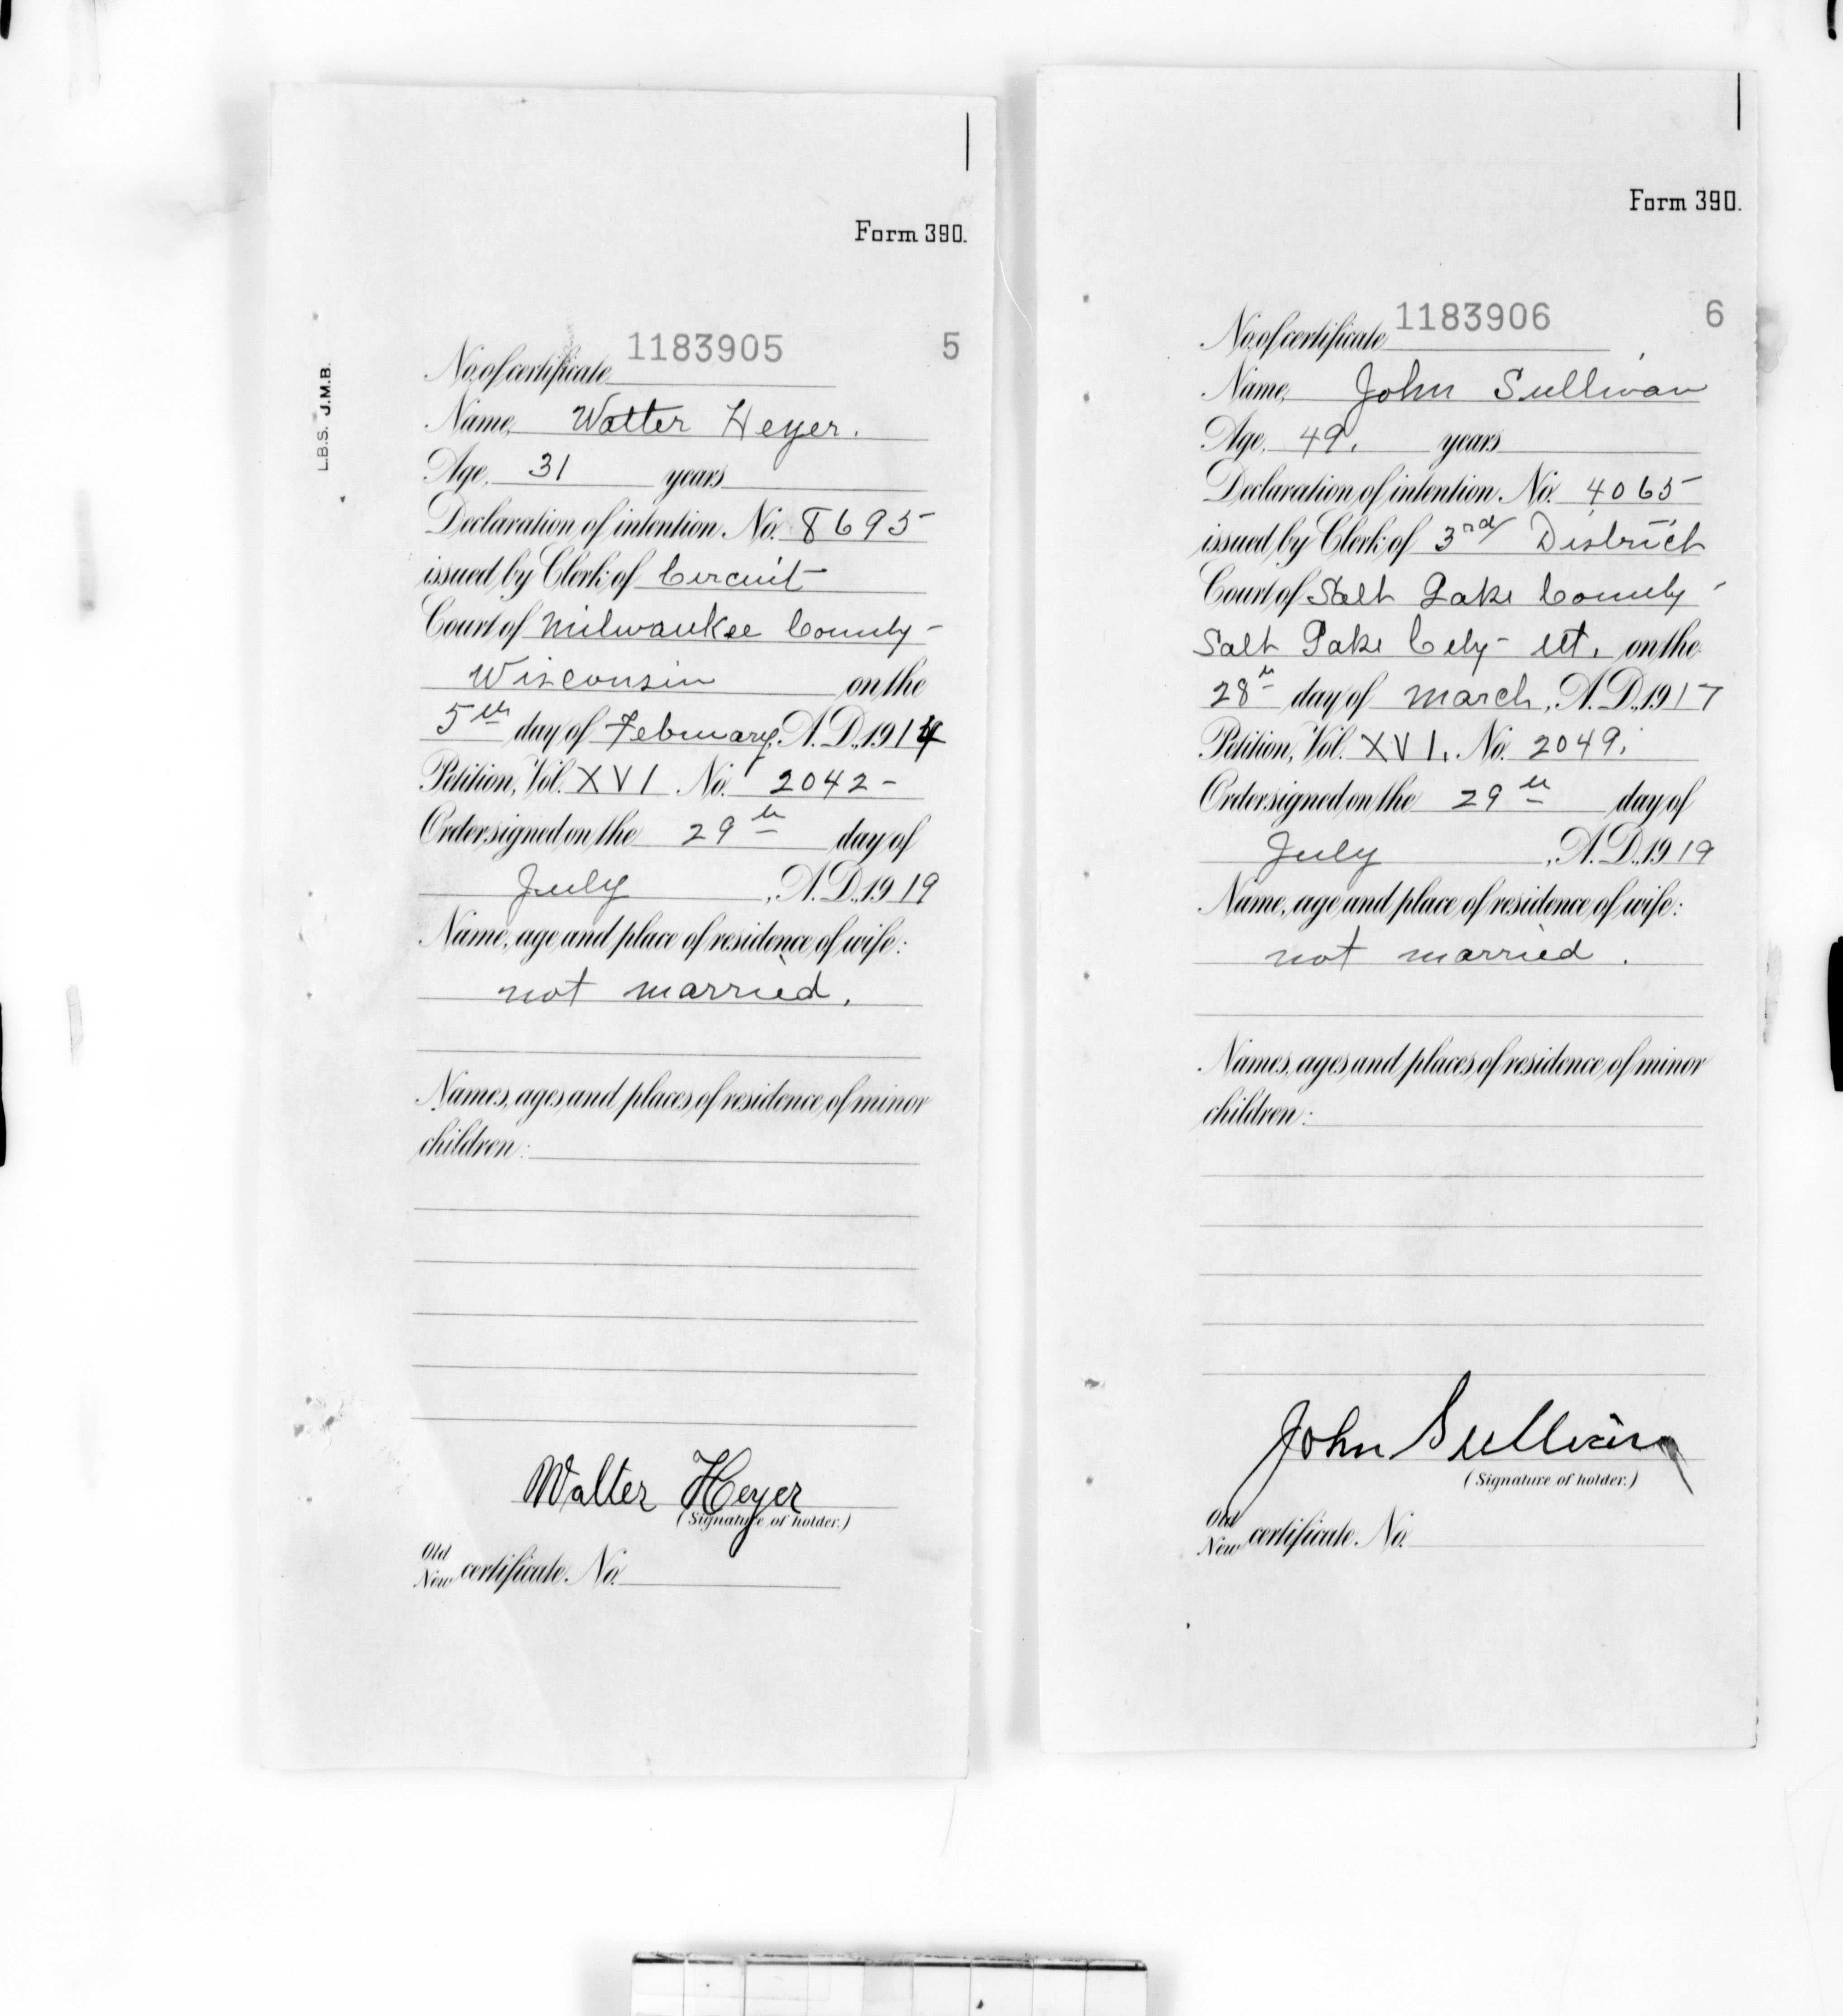 Form 390.
L.B.S. J.M.B.
No. of certificate 1183905 5
Name, Walter Heyer.
Age, 31 years
Declaration of intention, No. 8695
issued by Clerk of Circuit
Court of Milwaukee County -
Wisconsin on the
5th day of February, A.D., 1914
Petition, Vol. XVI No. 2042 -
Order signed on the 29th day of
July, A.D., 1919
Name, age and place of residence of wife:
not married.
Names, ages and places of residence of minor
children:
Walter Heyer
(Signature of holder.)
Old
New certificate No.
Form 390.
No. of certificate 1183906 6
Name, John Sullivan
Age, 49. years
Declaration of intention, No. 4065
issued by Clerk of 3rd District
Court of Salt Lake County
Salt Lake City - Ut. on the
28th day of March, A.D., 1917
Petition, Vol. XVI. No. 2049.
Order signed on the 29th day of
July, A.D., 1919
Name, age and place of residence of wife:
not married.
Names, ages and places of residence of minor
children:
John Sullivan
(Signature of holder.)
Old
New certificate No.